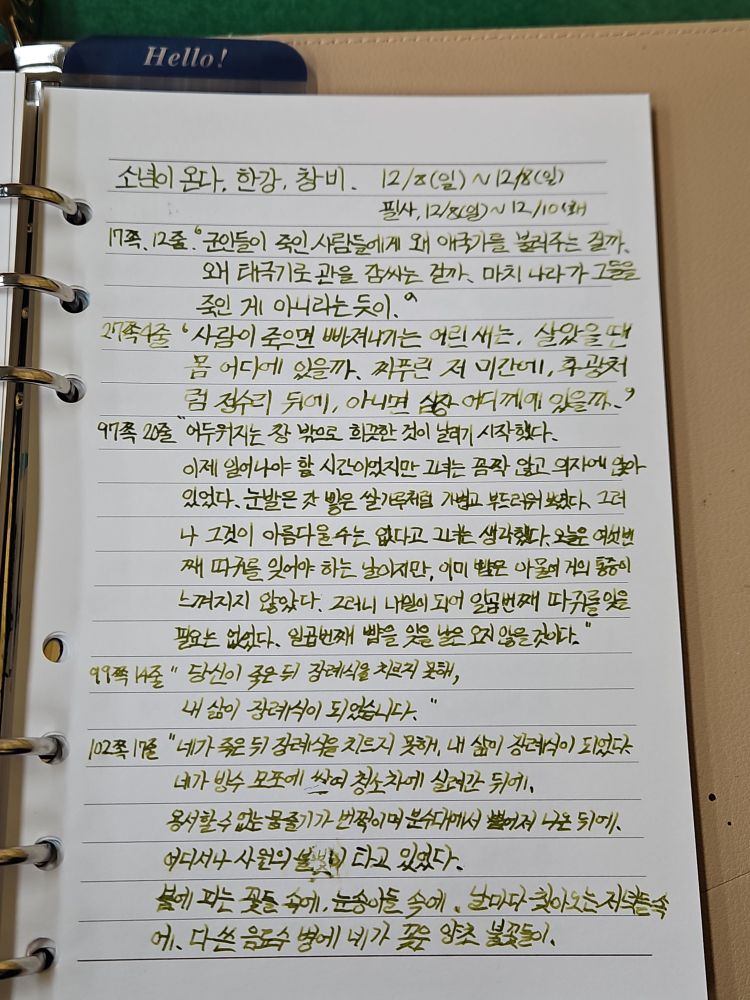 Hello!
소년이 온다, 한강, 창비. 12/8(일)~12/8(일)
필사, 12/8(일)~12/10(화)
17쪽, 12줄. "군인들이 죽인 사람들에게 왜 애국가를 불러주는 걸까.
왜 태극기로 관을 감싸는 걸까. 마치 나라가 그들을
죽인 게 아니라는 듯이."
27쪽 4줄 "사람이 죽으면 빠져나가는 어린 새는, 살았을 땐
몸 어디에 있을까. 찌푸린 저 미간에, 후광처
럼 정수리 뒤에, 아니면 심장 어디께에 있을까."
97쪽 20줄 "어두워지는 창 밖으로 희끗한 것이 날리기 시작했다.
이제 일어나야 할 시간이었지만 그녀는 꼼짝 않고 의자에 앉아
있었다. 눈발은 갓 빻은 쌀가루처럼 가볍고 부드러워 보였다. 그러
나 그것이 아름다울 수는 없다고 그녀는 생각했다. 오늘은 여섯번
째 따귀를 잊어야 하는 날이지만, 이미 뺨은 아물어 거의 통증이
느껴지지 않았다. 그러니 내일이 되어 일곱번째 따귀를 잊을
필요는 없었다. 일곱번째 뺨을 잊을 날은 오지 않을 것이다."
99쪽 14줄 "당신이 죽은 뒤 장례식을 치르지 못해,
내 삶이 장례식이 되었습니다."
102쪽 17줄 "네가 죽은 뒤 장례식을 치르지 못해, 내 삶이 장례식이 되었다.
네가 방수 모포에 싸여 청소차에 실려간 뒤에.
용서할 수 없는 물줄기가 번쩍이며 분수대에서 뿜어져 나온 뒤에.
어디서나 사원의 불빛이 타고 있었다.
봄에 피는 꽃들 속에, 눈송이들 속에. 날마다 찾아오는 저녁들 속
에. 다 쓴 음료수 병에 네가 꽂은 양초 불꽃들이.